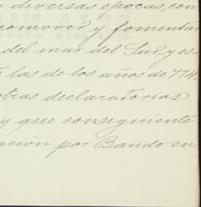 diversas epocas, con
y fomentar
del mar del Sur y es
las de los años de 774,
otras declaratorias
y que consiguiente
ación por Bando en